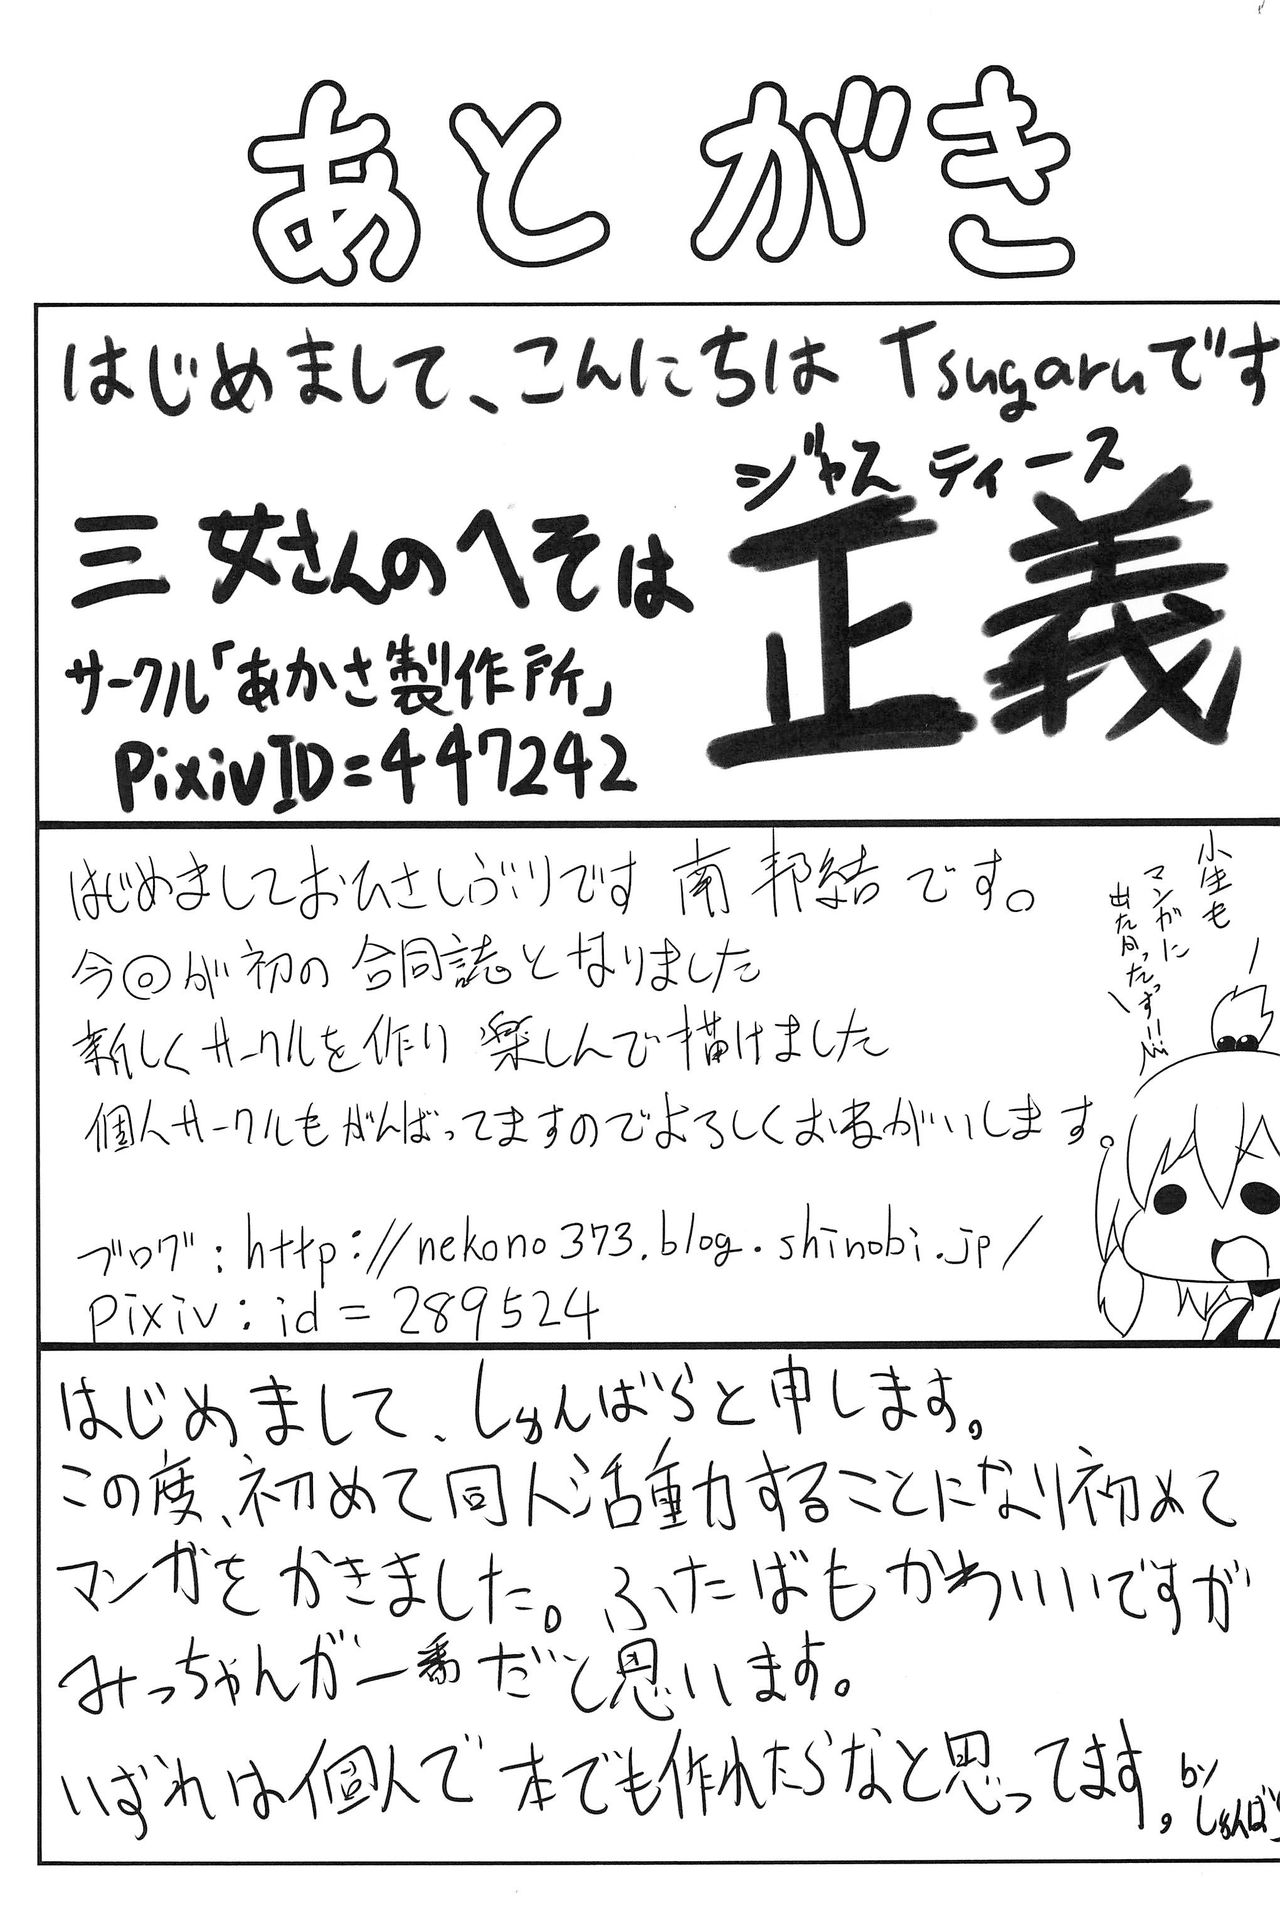 あとがき
はじめまして、こんにちは Tsugaruです
ジャスティース
三女さんのへそは 正義
サークル「あかさ製作所」
Pixiv ID=447242
はじめましておひさしぶりです 南 邦結 です。
今回が初の合同誌となりました
新しくサークルを作り 楽しんで描けました
個人サークルもがんばってますのでよろしくおねがいします。
ブログ:http://nekono373.blog.shinobi.jp/
pixiv:id=289524
小生も
マンガに
出たかったずぃ!!
はじめまして、しゅんばらと申します。
この度、初めて同人活動することになり初めて
マンガをかきました。ふたばもかわいいですが
みっちゃんが一番だと思います。
いずれは個人で本でも作れたらなと思ってます。
by
しゅんば